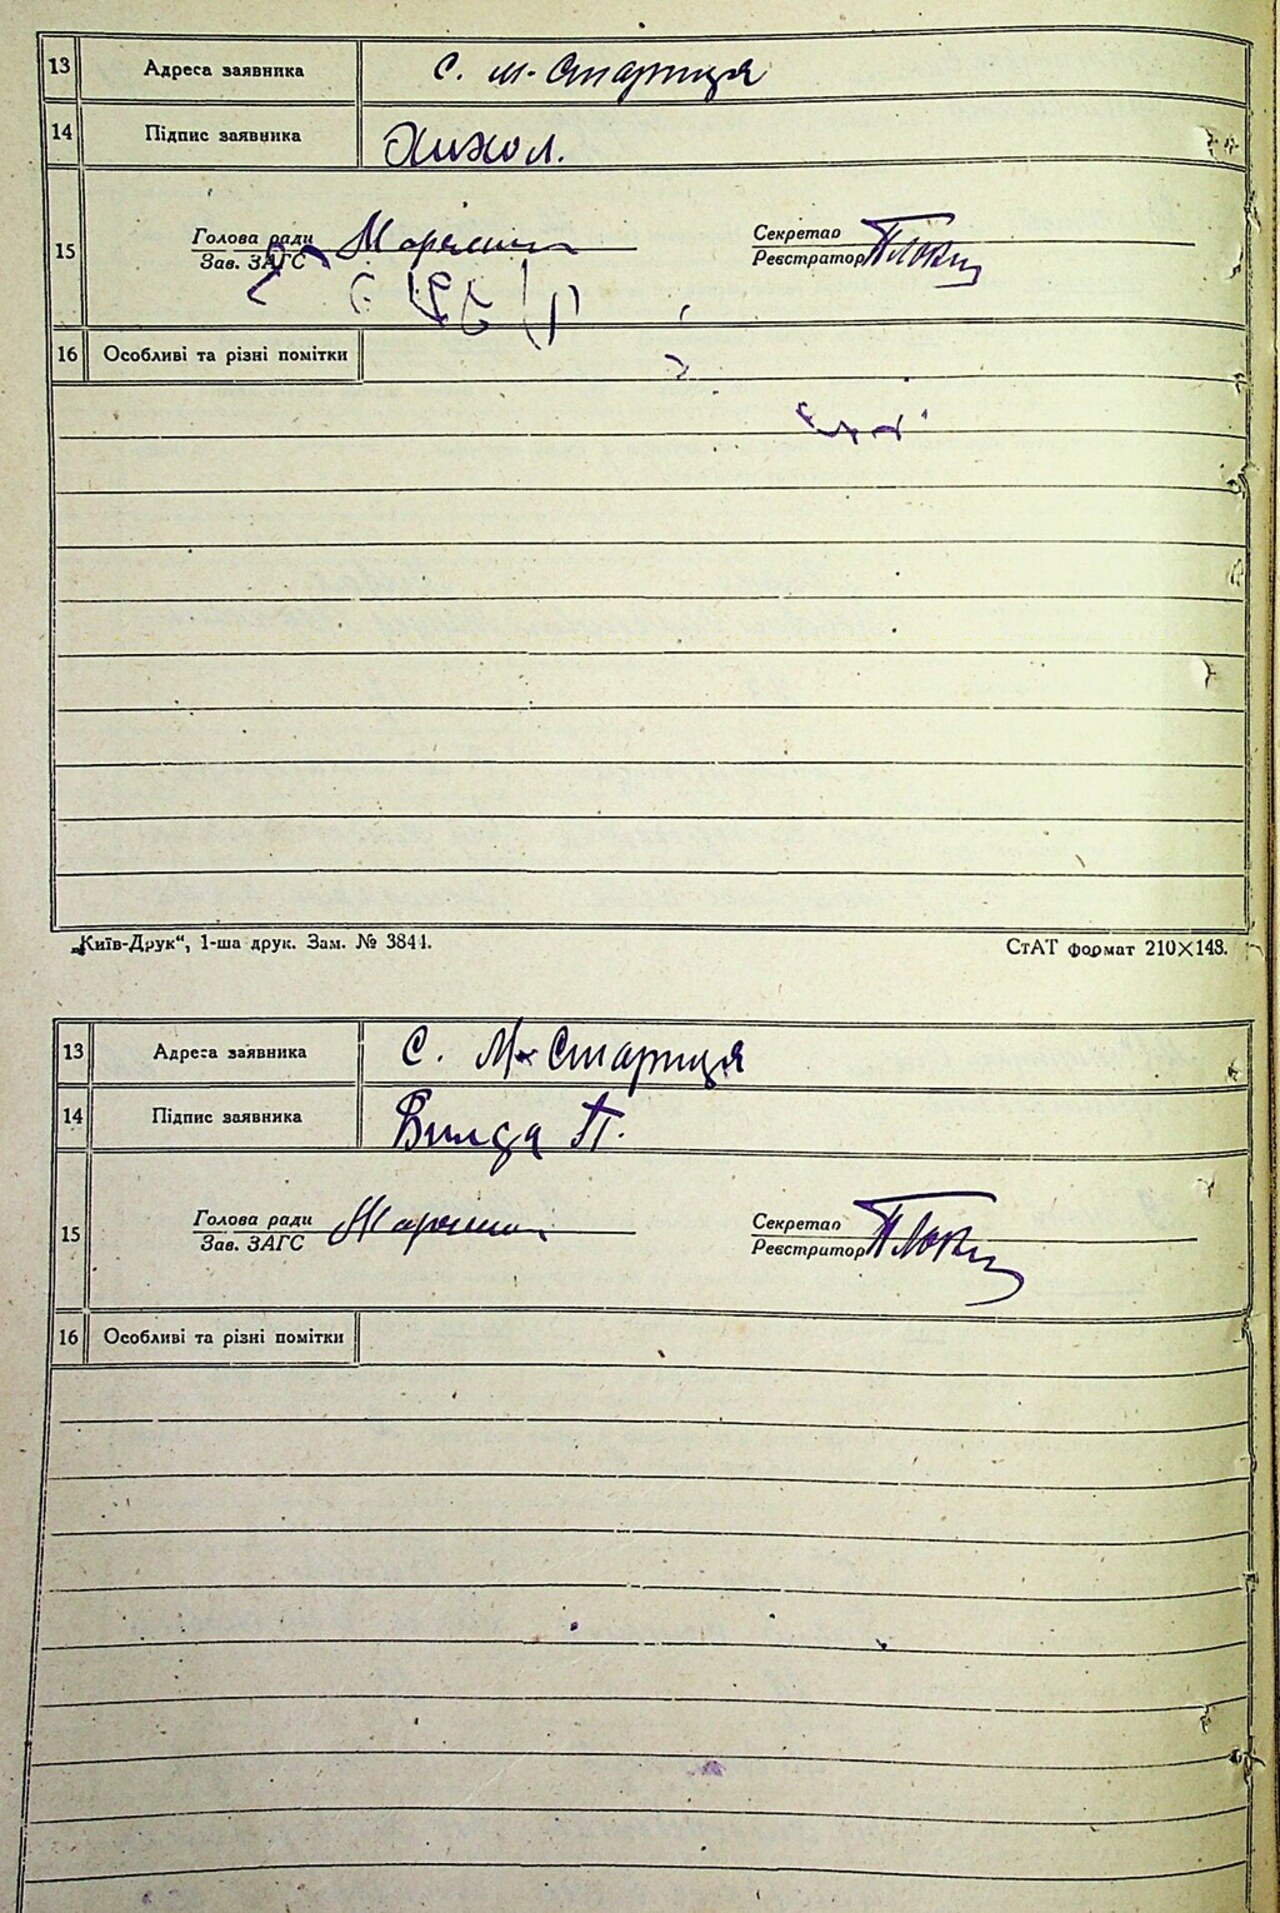 13 Адреса заявника С. М-Стариця
14 Підпис заявника
15 Голова ради Секретар
Зав. ЗАГС Реєстратор
16 Особливі та різні помітки
„Київ-Друк“, 1-ша друк. Зам. № 3844. СтАТ формат 210×148.
13 Адреса заявника С. М-Стариця
14 Підпис заявника
15 Голова ради Секретар
Зав. ЗАГС Реєстритор
16 Особливі та різні помітки